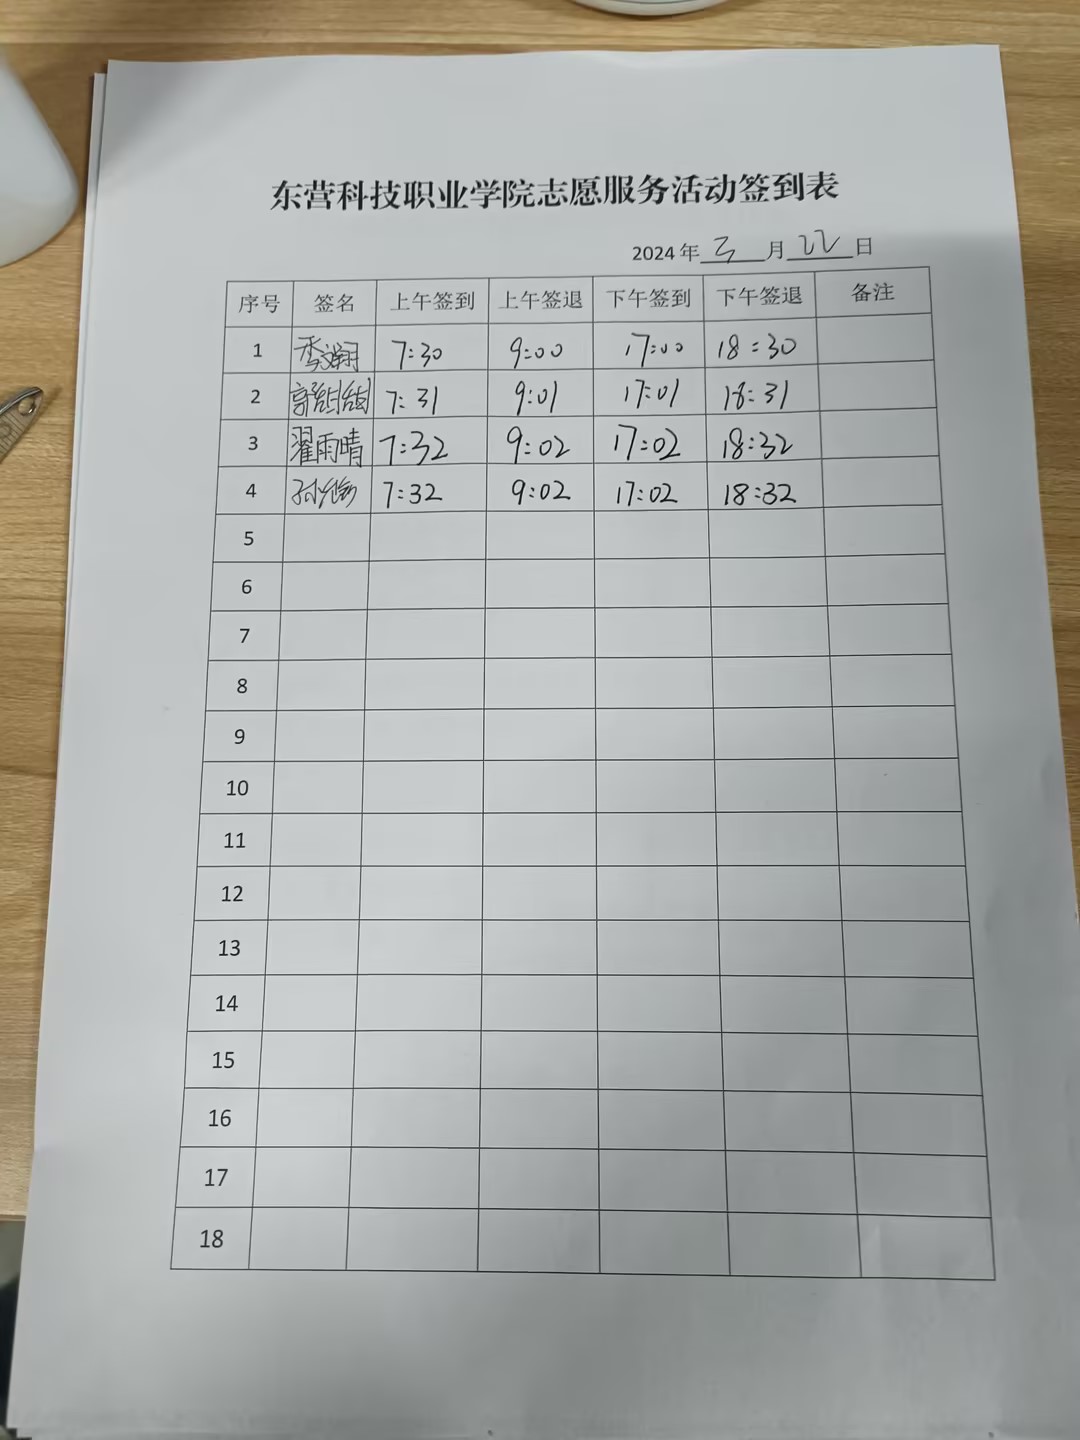 东营科技职业学院志愿服务活动签到表
2024年 3 月 22 日
序号 签名 上午签到 上午签退 下午签到 下午签退 备注
1 7:30 9:00 17:00 18:30
2 7:31 9:01 17:01 18:31
3 翟雨晴 7:32 9:02 17:02 18:32
4 7:32 9:02 17:02 18:32
5
6
7
8
9
10
11
12
13
14
15
16
17
18